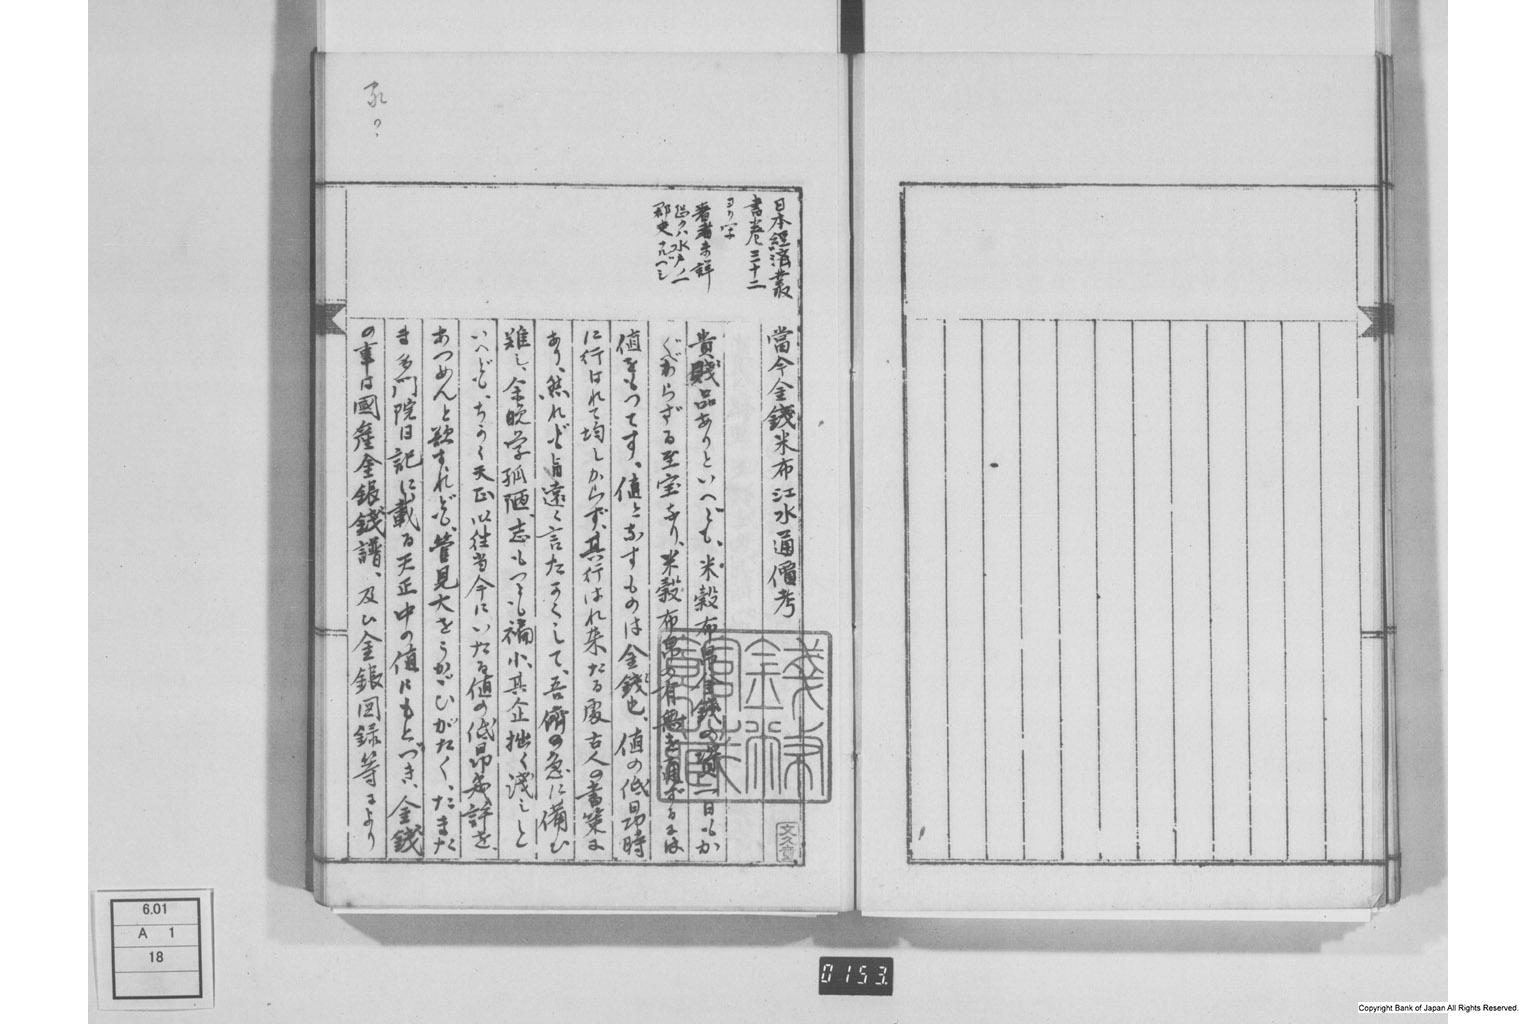 日本經濟叢
書卷三十二
ヨリ字
著者未詳
恐クハ水戸ノ一
郡吏ナルヘシ
當今金錢米布江水通價考
貴賤品ありといへども、米穀布帛金錢の資一日もか
くべからざる至宝なり、米穀布帛の有無を通ずるには
値をもつてす、値となすものは金錢也、値の低昂時
に行はれて均しからず、其行はれ来たる處古人の書策に
あり、然れども皆遠く言たかくして、吾儕の急に備ひ
難し、余晩学孤陋、志もつとも褊小、其企拙く淺しと
いへども、ちかく天正以往当今にいたる値の低昂発評を
あつめんと欲すれども、管見大をうかゞひがたく、たまたま
ま多門院日記に載る天正中の値にもとづき、金錢
の事は國産金銀錢譜、及ひ金銀図録等により
錢幣館藏
金林
文久堂
6.01
A 1
18
0153.
Copyright Bank of Japan All Rights Reserved.